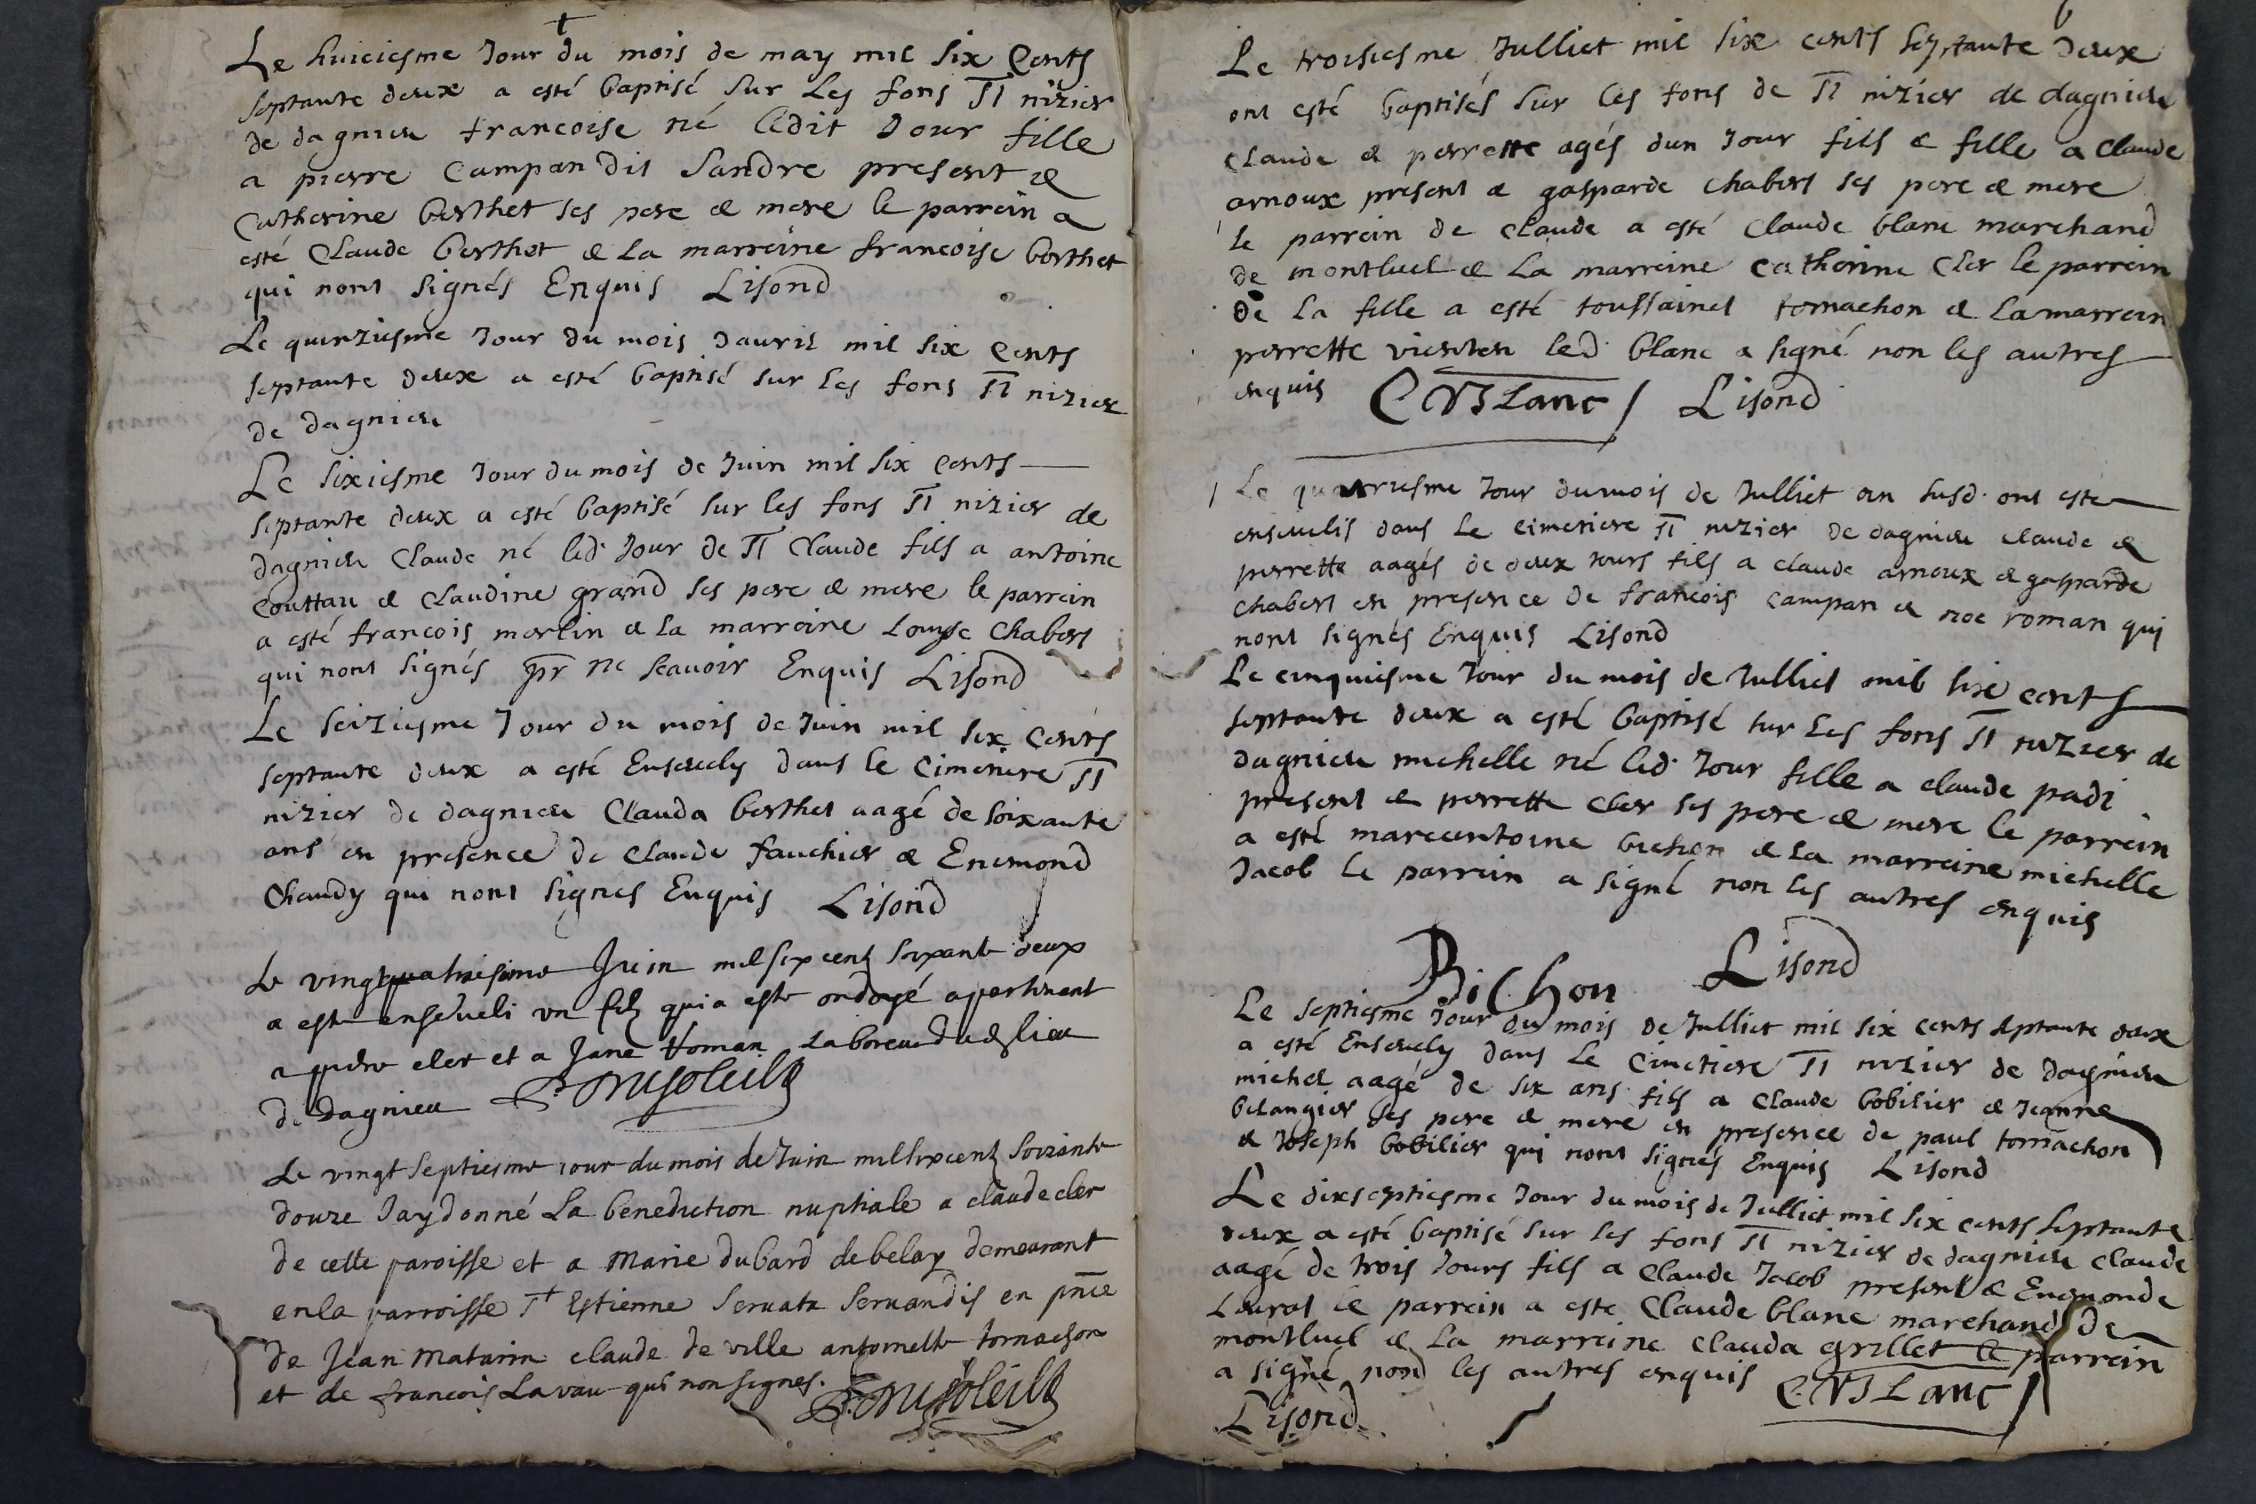 Le huiciesme Jour du mois de may mil six Cents
septante deux a esté baptisé sur les fons St nizier
de dagnieu francoise né ledit Jour fille
a pierre Campan dit Sandre present &
Catherine berthet ses pere & mere le parrein a
esté Claude berthet & la marreine francoise berthet
qui nont signés Enquis Lisond
Le quinziesme Jour du mois davril mil six Cents
septante deux a esté baptisé sur les fons St nizier
de dagnieu
Le sixiesme Jour du mois de Juin mil six cents
septante deux a esté baptisé sur les fons St nizier de
dagnieu Claude né led. Jour de St Claude fils a antoine
Couttau & Claudine grand ses pere & mere le parrein
a esté francois merlin & la marreine Louyse Chabert
qui nont signés pr ne scavoir Enquis Lisond
Le seiziesme Jour du mois de Juin mil six Cents
septante deux a esté Ensevely dans le Cimetiere St
nizier de dagnieu Clauda berthet aagé de soixante
ans en presence de Claude fauchier & Enemond
Chaudy qui nont signes Enquis Lisond
Le vingtquatriesime Juin mil six centz soixante deux
a este enseveli un filz qui a este ondoyé apertenent
a pierre cler et a Jane Roman laboreur dudz lieu
de Dagnieu
Le vingt septiesme jour du mois de Juin mil six centz soixante
douze Jay donné la benediction nuptiale a claude cler
de cette paroisse et a Marie dubard de belay demeurant
en la parroisse St Estienne Servatz Servandis en pnce
de Jean Matarin claude de ville antoinette tornachon
et de francois Lavau qui non signes.
Le troisiesme Julliet mil six cents septante deux
ont esté baptisés sur les fons de St nizier de dagnieu
Claude & perrette agés dun Jour fils & fille a Claude
arnoux present & gasparde Chabert ses pere & mere
le parrein de Claude a esté Claude blanc marchand
de montluel & la marreine Catherine Cler le parrein
De la fille a esté toussainct tornachon & la marrein
perrette led blanc a signé non les autres
enquis C Blanc Lisond
Le quatriesme Jour du mois de Julliet an susd. ont esté
ensevelis dans le cimetiere St nizier de dagnieu Claude &
perrette aagés de deux Jours fils a claude arnoux & gasparde
Chabert en presence de francois Campan & noe roman qui
nont signés Enquis Lisond
Le cinquiesme Jour du mois de Julliet mil six cents
septante deux a esté baptisé sur les fons St nizier de
dagnieu michelle né led. Jour fille a claude padi
present & perrette cler ses pere & mere le parrein
a esté marcantoine bichon & la marreine michelle
Jacob le parrein a signé non les autres enquis
Bichon Lisond
Le septiesme Jour du mois de Julliet mil six cents septante deux
a esté Ensevely dans Le Cimetiere St nizier de dagnieu
michel aagé de six ans fils a Claude bobilier & Jeanne
belangier ses pere & mere en presence de paul tornachon
& Joseph bobilier qui nont signés Enquis Lisond
Le dixseptiesme Jour du mois de Julliet mil six cents septante
deux a esté baptisé sur les fons St nizier de dagnieu Claude
aagé de trois Jours fils a Claude Jacob present & Enemonde
Laurat le parrein a este Claude blanc marchand de
montluel & la marreine Clauda grillet le parrein
a signé nond les autres enquis C. Blanc
Lisond